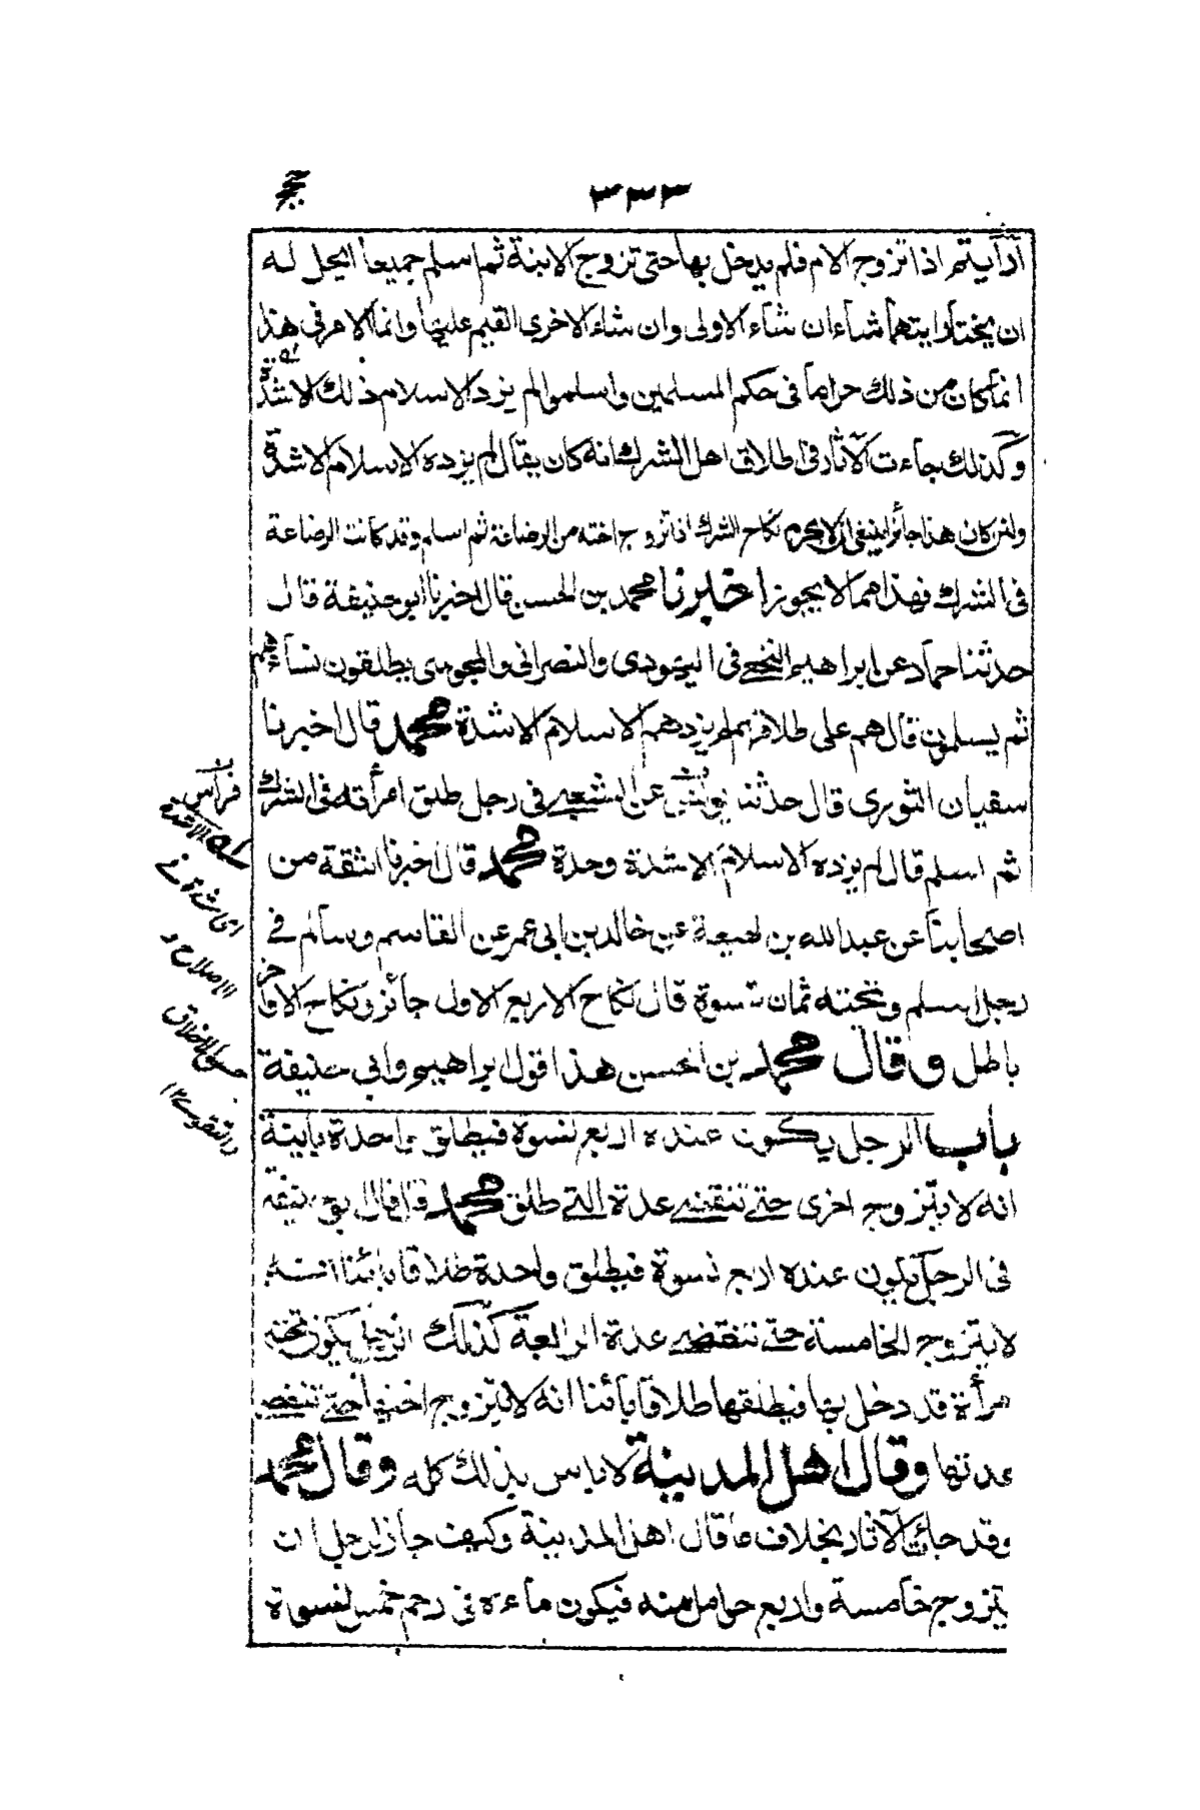 ٣٣٣
أرأيتم اذا تزوج الام فلم يدخل بها حتى تزوج الابنة ثم اسلم جميعا ايحل له
ان يختار ايتهما شاء ان شاء الاولى وان شاء الاخرى القيم عليها وانما الامر فى هذا
انما كان من ذلك حراما فى حكم المسلمين واسلموا لم يزد الاسلام ذلك الا شدة
وكذلك جاءت الآثار فى طلاق اهل الشرك انه كان يقال لم يزده الاسلام الا شدة
ولئن كان هذا جائزا لينبغى ان لا يحرم نكاح الشرك اذا تزوج اخته من الرضاعة ثم اسلم وقد كانت الرضاعة
فى الشرك فهذا مما لا يجوز اخبرنا محمد بن الحسن قال اخبرنا ابو حنيفة قال
حدثنا حماد عن ابراهيم النخعي فى اليهودى والنصرانى والمجوسى يطلقون نساءهم
ثم يسلمون قال هم على طلاقهم لم يزدهم الاسلام الا شدة محمد قال اخبرنا
سفيان الثورى قال حدثنا يونس عن الشعبي فى رجل طلق امرأته فى الشرك
ثم اسلم قال لم يزده الاسلام الا شدة وحدة محمد قال اخبرنا الثقة من
اصحابنا عن عبد الله بن لهيعة عن خالد بن ابى عمر عن القاسم وسالم في
رجل اسلم وتحته ثمان نسوة قال نكاح الاربع الاول جائز ونكاح الاواخر
باطل وقال محمد بن الحسن هذا قول ابراهيم وابي حنيفة
باب الرجل يكون عنده اربع نسوة فيطلق واحدة بائنة
انه لا يتزوج اخرى حتے تنقضے عدة التے طلق محمد قال قال ابو حنيفة
فى الرجل يكون عنده اربع نسوة فيطلق واحدة طلاقا بائنا انه
لا يتزوج الخامسة حتے تنقضے عدة الرابعة كذلك الرجل يكون تحته
امرأة قد دخل بها فيطلقها طلاقا بائنا انه لا يتزوج اختها حتے تنقضے
عدتها وقال اهل المدينة لا بأس بذلك كله وقال محمد
وقد جاءت الآثار بخلاف ما قال اهل المدينة وكيف جاز لرجل ان
يتزوج خامسة واربع حوامل منه فيكون ماءه فى رحم خمس نسوة
فراس